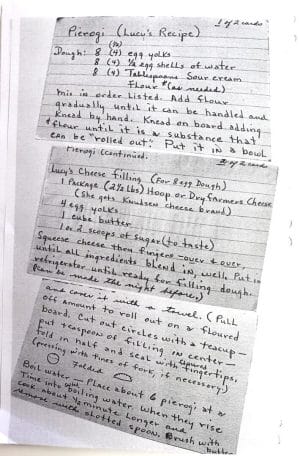 1 of 2 cards
Pierogi (Lucy's Recipe)
(½)
Dough: 8 (4) egg yolks
8 (4) ½ egg shells of water
8 (4) Tablespoons Sour cream
Flour (as needed)
mix in order listed. Add flour
gradually until it can be handled and
knead by hand. Knead on board adding
flour until it is a substance that
can be "rolled out". Put it in a bowl
2 of 2 cards
Pierogi (continued)
Lucy's Cheese filling (For 8 egg Dough)
1 Package (2½ lbs) Hoop or Dry Farmers Cheese
(She gets Knudsen cheese brand)
4 egg yolks
1 cube butter
1 or 2 scoops of sugar (to taste)
Squeeze cheese thru fingers over & over
until all ingredients blend in well. Put in
refrigerator until ready for filling dough.
(Can be made the night before)
and cover it with a towel. (Pull
off amount to roll out on a floured
board. Cut out circles with a teacup—
Put teaspoon of filling in center—
Fold in half and seal with floured fingertips,
(pressing with tines of fork, if necessary)
Folded
Boil water. Place about 6 pierogi at a
Time into boiling water. When they rise
cook about ½ minute longer and
remove slotted spoon. Brush with
butter